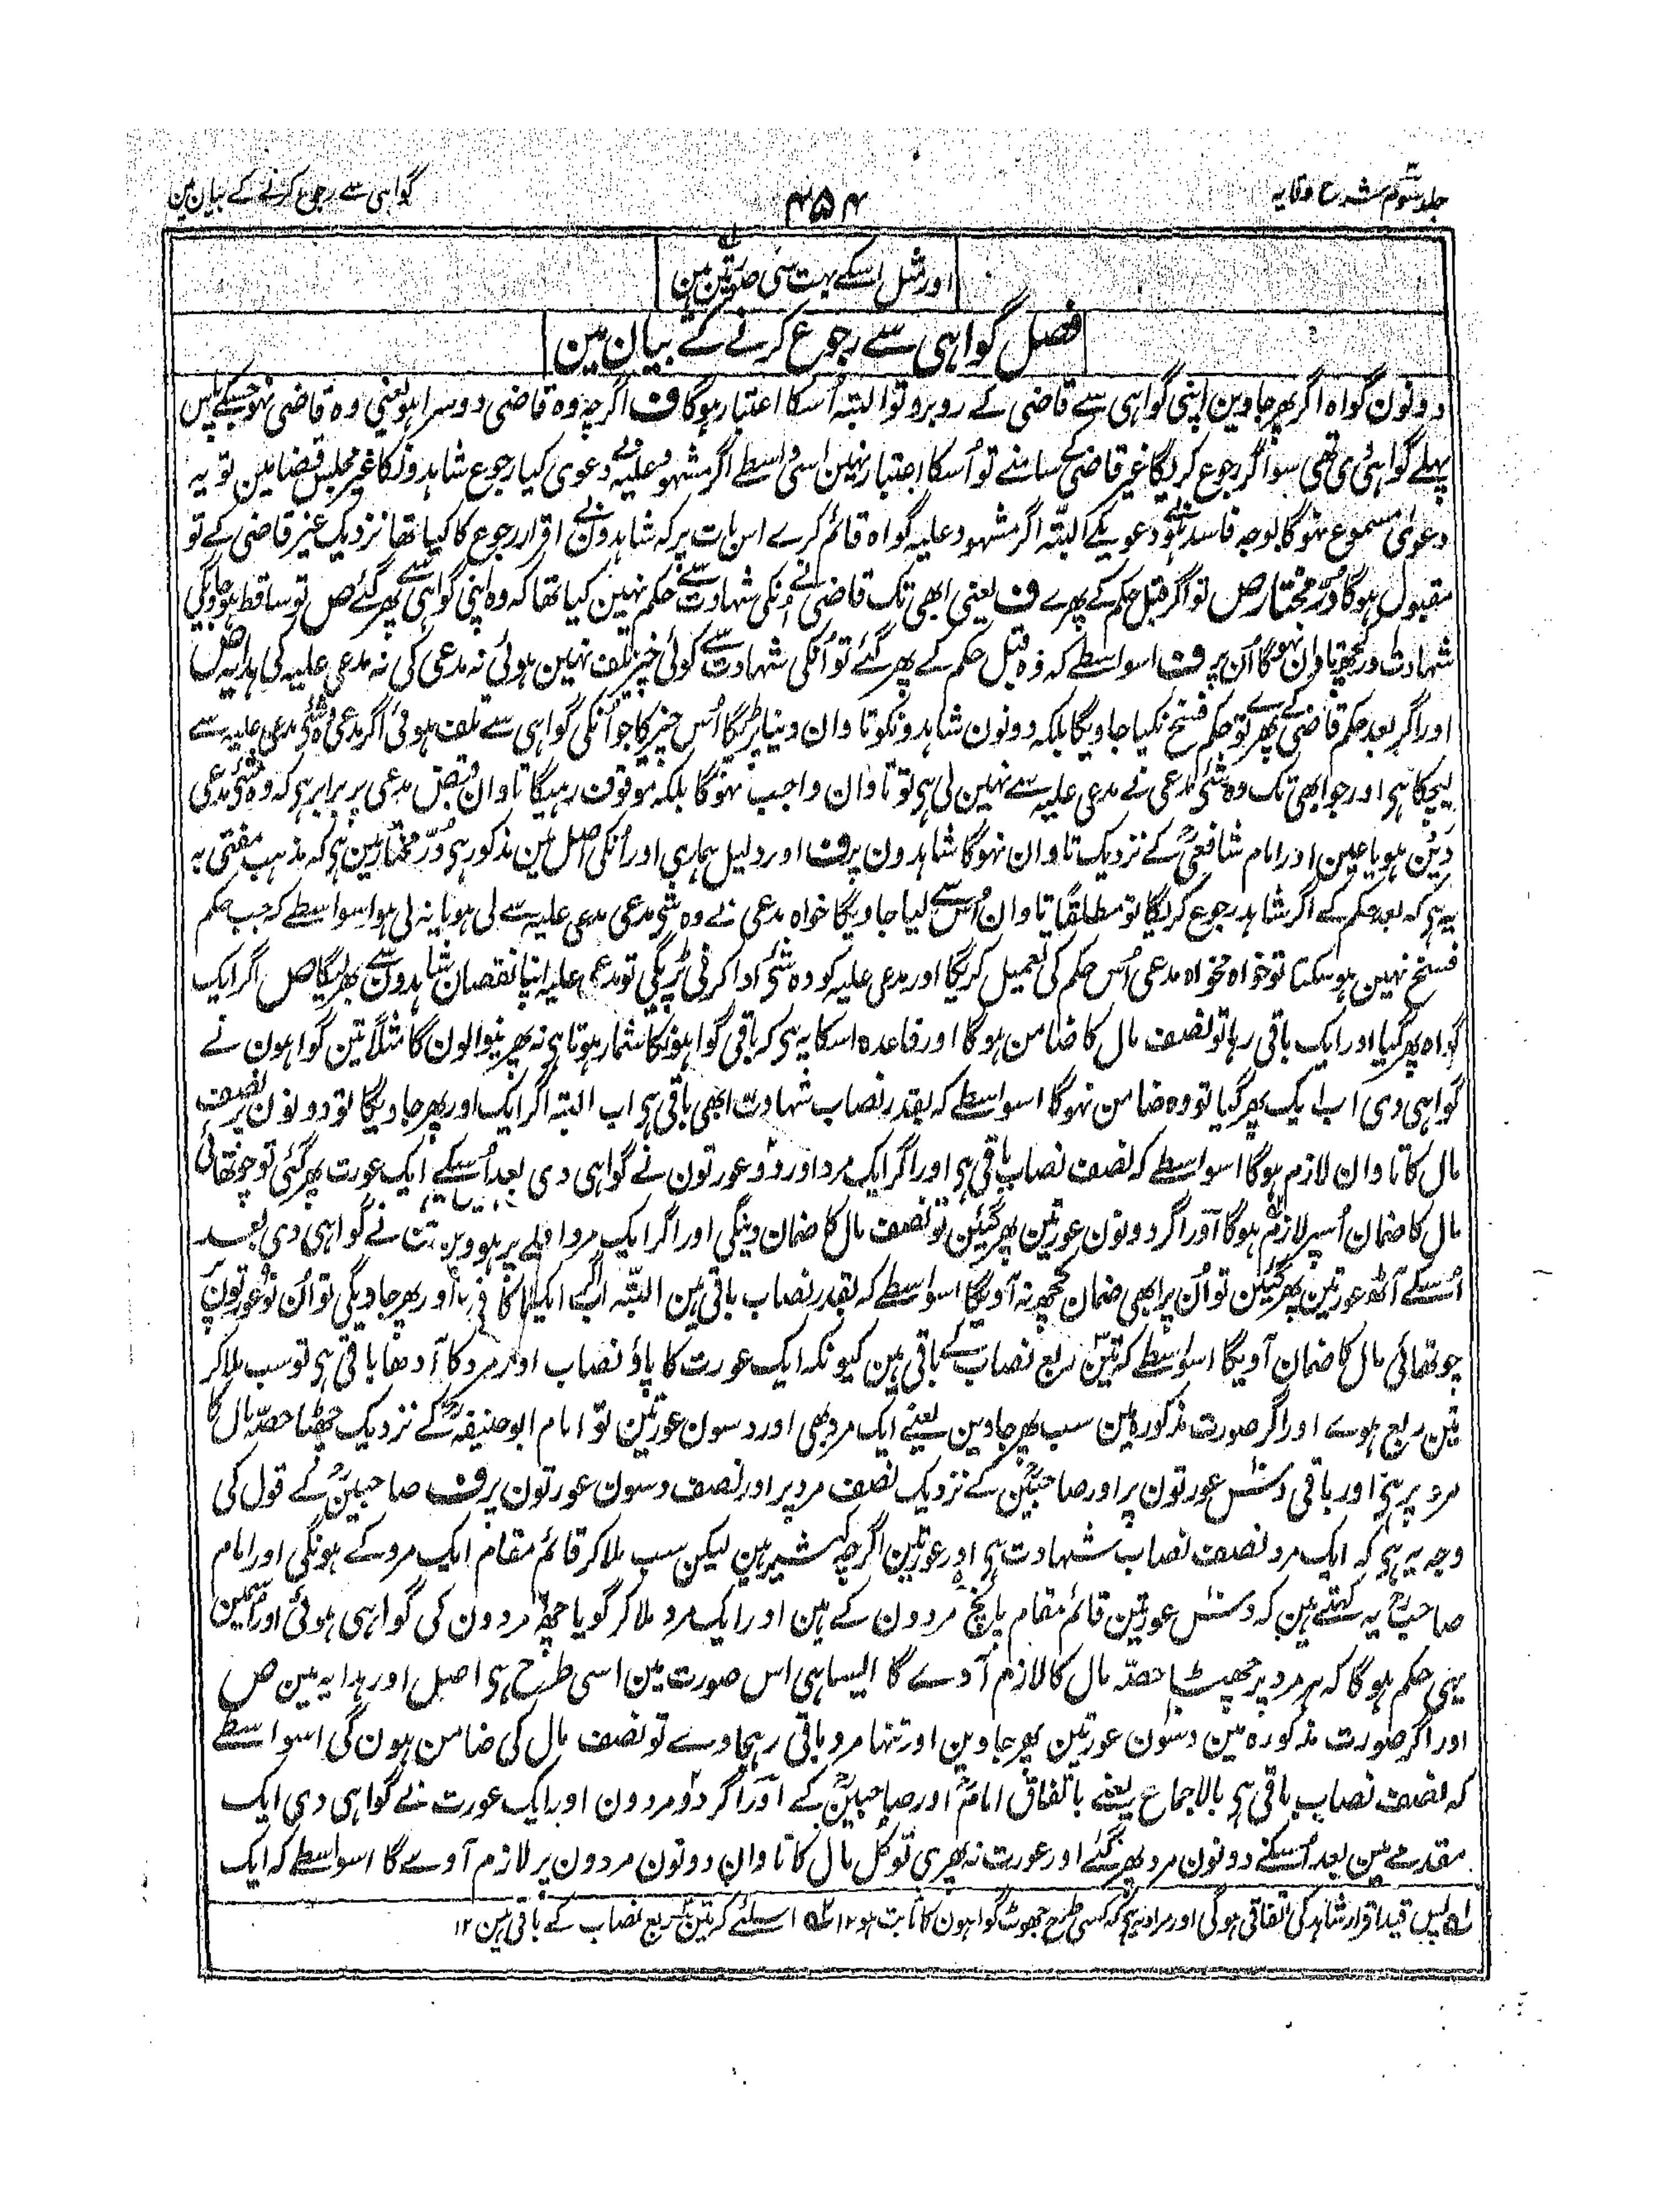 جلد سوم شرح وقایہ
۴۵۴
گواہی سے رجوع کرنے کے بیان مین
اور مثل اسکے بہت سی صورتین ہین
فصل گواہی سے رجوع کرنے کے بیان مین
دونون گواہ اگر پھر جاوین اپنی گواہی سے قاضی کے روبرو تو البتہ اُسکا اعتبار ہوگا ف اگرچہ وہ قاضی دوسرا ہو یعنی وہ قاضی نہو جسکے پاس
پہلے گواہی دی تھی سو اگر رجوع کریگا غیر قاضی کے سامنے تو اُسکا اعتبار نہین اسی واسطے اگر مشہود علیہ نے دعوی کیا رجوع شاہدونکا غیر مجلس قضا مین تو یہ
دعوی مسموع نہوگا بوجہ فاسد ہونے دعویکے البتہ اگر مشہود علیہ گواہ قائم کرے اس بات پر کہ شاہدون نے اقرار رجوع کا کیا تھا نزدیک غیر قاضی کے تو
مقبول ہوگا دُرّ مختار ص تو اگر قبل حکم کے پھرے ف یعنی ابھی تک قاضی نے اُنکی شہادت سے حکم نہین کیا تھا کہ وہ اپنی گواہی سے پھر گئے ص تو ساقط ہوجاویگی
شہادت اور کچھ تاوان نہوگا اُن پر ف اسواسطے کہ وہ قبل حکم کے پھر گئے تو اُنکی شہادت سے کوئی چیز تلف نہین ہوئی نہ مدعی کی نہ مدعی علیہ کی ہدایہ ص
اور اگر بعد حکم قاضی کے پھرے تو حکم فسخ نکیا جاویگا بلکہ دونون شاہدونکو تاوان دینا پڑیگا اُس چیز کا جو اُنکی گواہی سے تلف ہوئی اگر مدعی وہ شئ مدعی علیہ سے
لیچکا ہی اور جو ابھی تک وہ شئ مدعی نے مدعی علیہ سے نہین لی ہی تو تاوان واجب نہوگا بلکہ موقوف رہیگا تاوان قبض مدعی پر برابر ہی کہ وہ شئ مدعی
دَین ہو یا عین اور امام شافعیؒ کے نزدیک تاوان نہوگا شاہدون پر ف اور دلیل ہماری اور اُنکی اصل مین مذکور ہی دُرّ مختار مین ہی کہ مذہب مفتی بہ
یہ ہی کہ بعد حکم کے اگر شاہد رجوع کریگا تو مطلقًا تاوان اُس سے لیا جاویگا خواہ مدعی نے وہ شئ مدعی علیہ سے لی ہو یا نہ لی ہو اسواسطے کہ جب حکم
فسخ نہین ہوسکتا تو خواہ مخواہ مدعی اُس حکم کی تعمیل کریگا اور مدعی علیہ کو وہ شئ ادا کرنی پڑیگی تو مدعی علیہ اپنا نقصان شاہدون سے بھر لیگا ص اگر ایک
گواہ پھر گیا اور ایک باقی رہا تو نصف مال کا ضامن ہوگا اور قاعدہ اسکا یہ ہی کہ باقی گواہونکا شمار ہوتا ہی نہ پھرنیوالون کا مثلًا تین گواہون نے
گواہی دی اب ایک پھر گیا تو وہ ضامن نہوگا اسواسطے کہ بقدر نصاب شہادت ابھی باقی ہی اب البتہ اگر ایک اور پھر جاویگا تو دونون پر نصف
مال کا تاوان لازم ہوگا اسواسطے کہ نصف نصاب باقی ہی اور اگر ایک مرد اور دو عورتون نے گواہی دی بعد اُسکے ایک عورت پھر گئی تو چوتھائی
مال کا ضمان اُسپر لازم ہوگا اور اگر دونون عورتین پھر گئین تو نصف مال کا ضمان دینگی اور اگر ایک مرد اور نے گواہی دی بعد
اُسکے آٹھ عورتین پھر گئین تو اُن پر ابھی ضمان کچھ نہ آویگا اسواسطے کہ بقدر نصاب باقی ہین البتہ اگر ایک اور پھر جاویگی تو اُن نو عورتون پر
چوتھائی مال کا ضمان آویگا اسواسطے کہ تین ربع نصاب کے باقی ہین کیونکہ ایک عورت کا پاؤ نصاب اور مرد کا آدھا باقی ہی تو سب ملاکر
تین ربع ہوے اور اگر صورت مذکورہ مین سب پھر جاوین یعنے ایک مرد بھی اور دسون عورتین تو امام ابو حنیفہؒ کے نزدیک چھٹا حصّہ مال کا
مرد پر ہی اور باقی دسٰ عورتون پر اور صاحبینؒ کے نزدیک نصف مرد پر اور نصف دسون عورتون پر ف صاحبینؒ کے قول کی
وجہ یہ ہی کہ ایک مرد نصف نصاب شہادت ہی اور عورتین اگرچہ کثیر ہین لیکن سب ملاکر قائم مقام ایک مرد کے ہونگی اور امام
صاحبؒ یہ کہتے ہین کہ دسٰ عورتین قائم مقام پانچ مردون کے ہین اور ایک مرد ملاکر گویا چھ مردون کی گواہی ہوئی اور اُسمین
یہی حکم ہوگا کہ ہر مرد پر چھٹا حصّہ مال کا لازم آوے گا ایسا ہی اس صورت مین اسی طرح ہی اصل اور ہدایہ مین ص
اور اگر صورت مذکورہ مین دسون عورتین پھر جاوین اور تنہا مرد باقی رہجاوے تو نصف مال کی ضامن ہون گی اسواسطے
کہ نصف نصاب باقی ہی بالاجماع یعنے باتفاق امامؒ اور صاحبینؒ کے اور اگر دو مردون اور ایک عورت نے گواہی دی ایک
مقدمے مین بعد اُسکے دونون مرد پھر گئے اور عورت نہ پھری تو کل مال کا تاوان دونون مردون پر لازم آوے گا اسواسطے کہ ایک
لہ پس قید اقرار شاہد کی اتفاقی ہوگی اور مراد یہ ہی کہ کسی طرح جھوٹ گواہون کا ثابت ہو ۱۲ اسلئے کہ تین ربع نصاب کے باقی ہین ۱۲